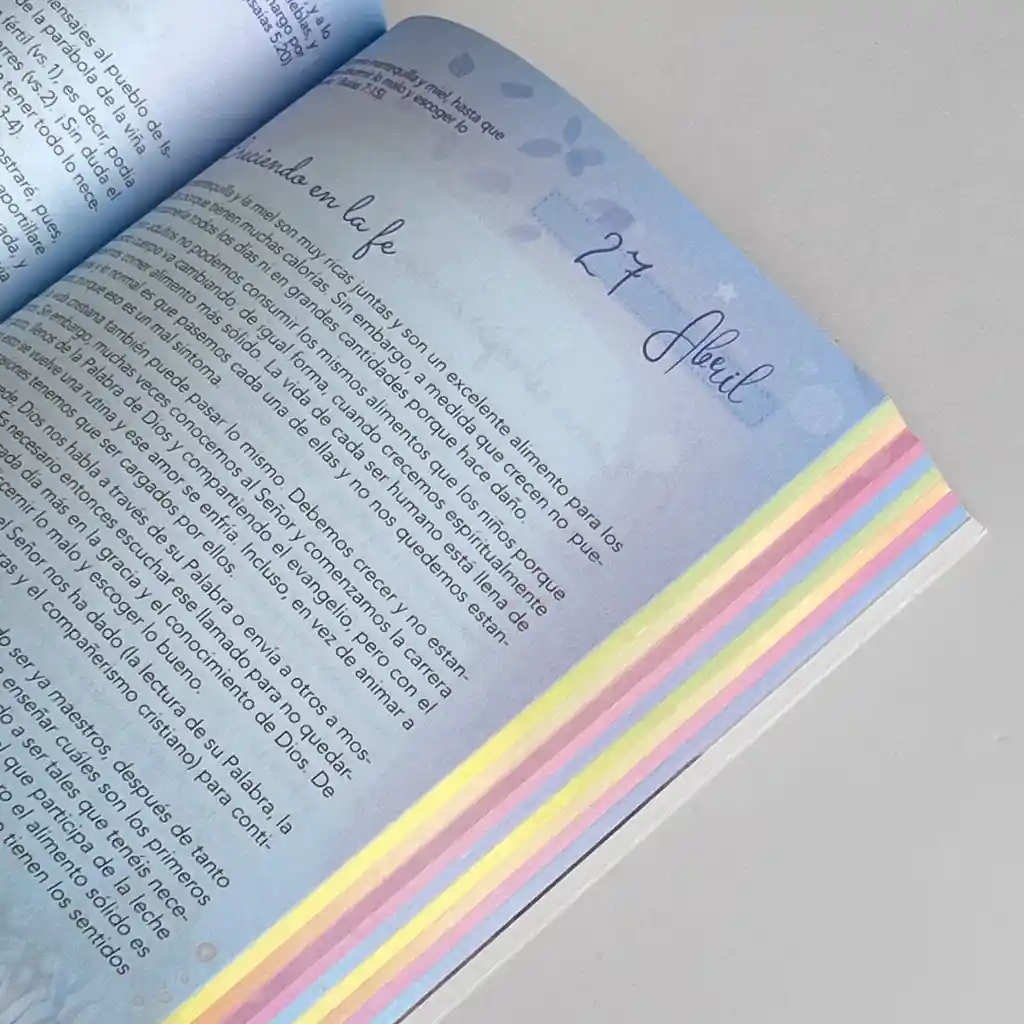 y a lo
eblas, y
nargo por
saías 5:20)
ensajes al pueblo de Is-
de la parábola de la viña
fértil (vs. 1), es decir, podía
rres (vs.2). ¡Sin duda el
tener todo lo nece-
3-4).
ostraré, pues,
aportillaré
rada y
tequilla y miel, hasta que
lo malo y escoger lo
(Isaías 7:15).
27
Abril
eciendo en la fe
antequilla y la miel son muy ricas juntas y son un excelente alimento para los
porque tienen muchas calorías. Sin embargo, a medida que crecen no pue-
todos los días ni en grandes cantidades porque hace daño.
adultos no podemos consumir los mismos alimentos que los niños porque
cuerpo va cambiando, de igual forma, cuando crecemos espiritualmente
comer alimento más sólido. La vida de cada ser humano está llena de
y lo normal es que pasemos cada una de ellas y no nos quedemos estan-
porque eso es un mal síntoma.
vida cristiana también puede pasar lo mismo. Debemos crecer y no estan-
Sin embargo, muchas veces conocemos al Señor y comenzamos la carrera
llenos de la Palabra de Dios y compartiendo el evangelio, pero con el
se vuelve una rutina y ese amor se enfría. Incluso, en vez de animar a
tenemos que ser cargados por ellos.
de Dios nos habla a través de su Palabra o envía a otros a mos-
Es necesario entonces escuchar ese llamado para no quedar-
cada día más en la gracia y el conocimiento de Dios. De
cernir lo malo y escoger lo bueno.
el Señor nos ha dado (la lectura de su Palabra, la
y el compañerismo cristiano) para conti-
do ser ya maestros, después de tanto
enseñar cuáles son los primeros
do a ser tales que tenéis nece-
que participa de la leche
ro el alimento sólido es
tienen los sentidos